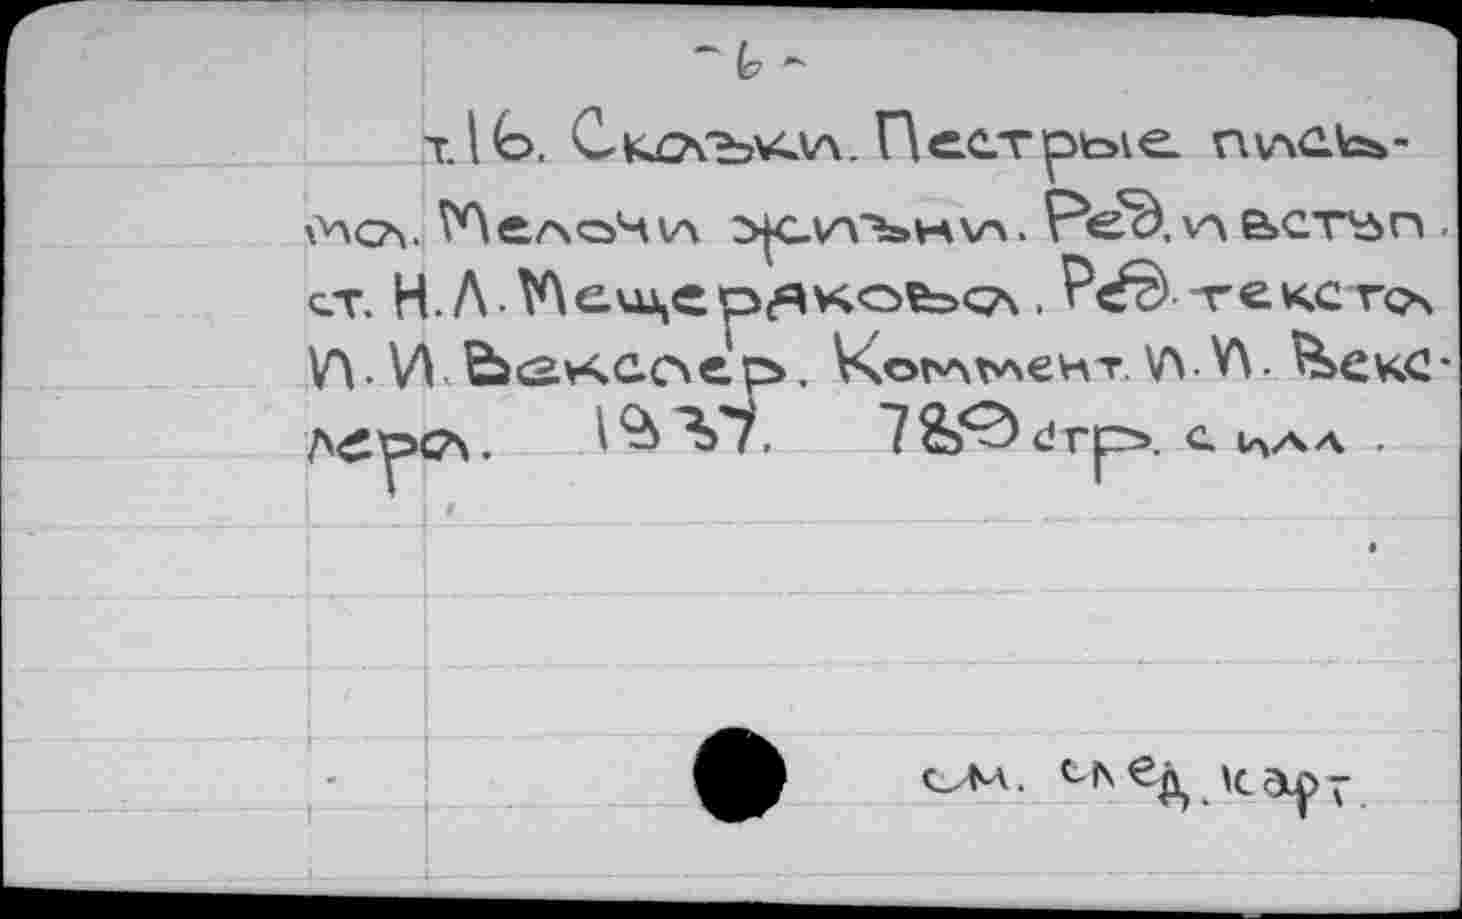 - 6 -
т.16. Сказки. Пестрые пись-
ма. Мелочи жизни. Ред. и вступ.
ст. Н.Л. Мещерякова. Ред. текста
И.И. Векслер. Коммент. И.И. Векс-
лера. 1937. 789 стр. с илл.
см. след. карт.